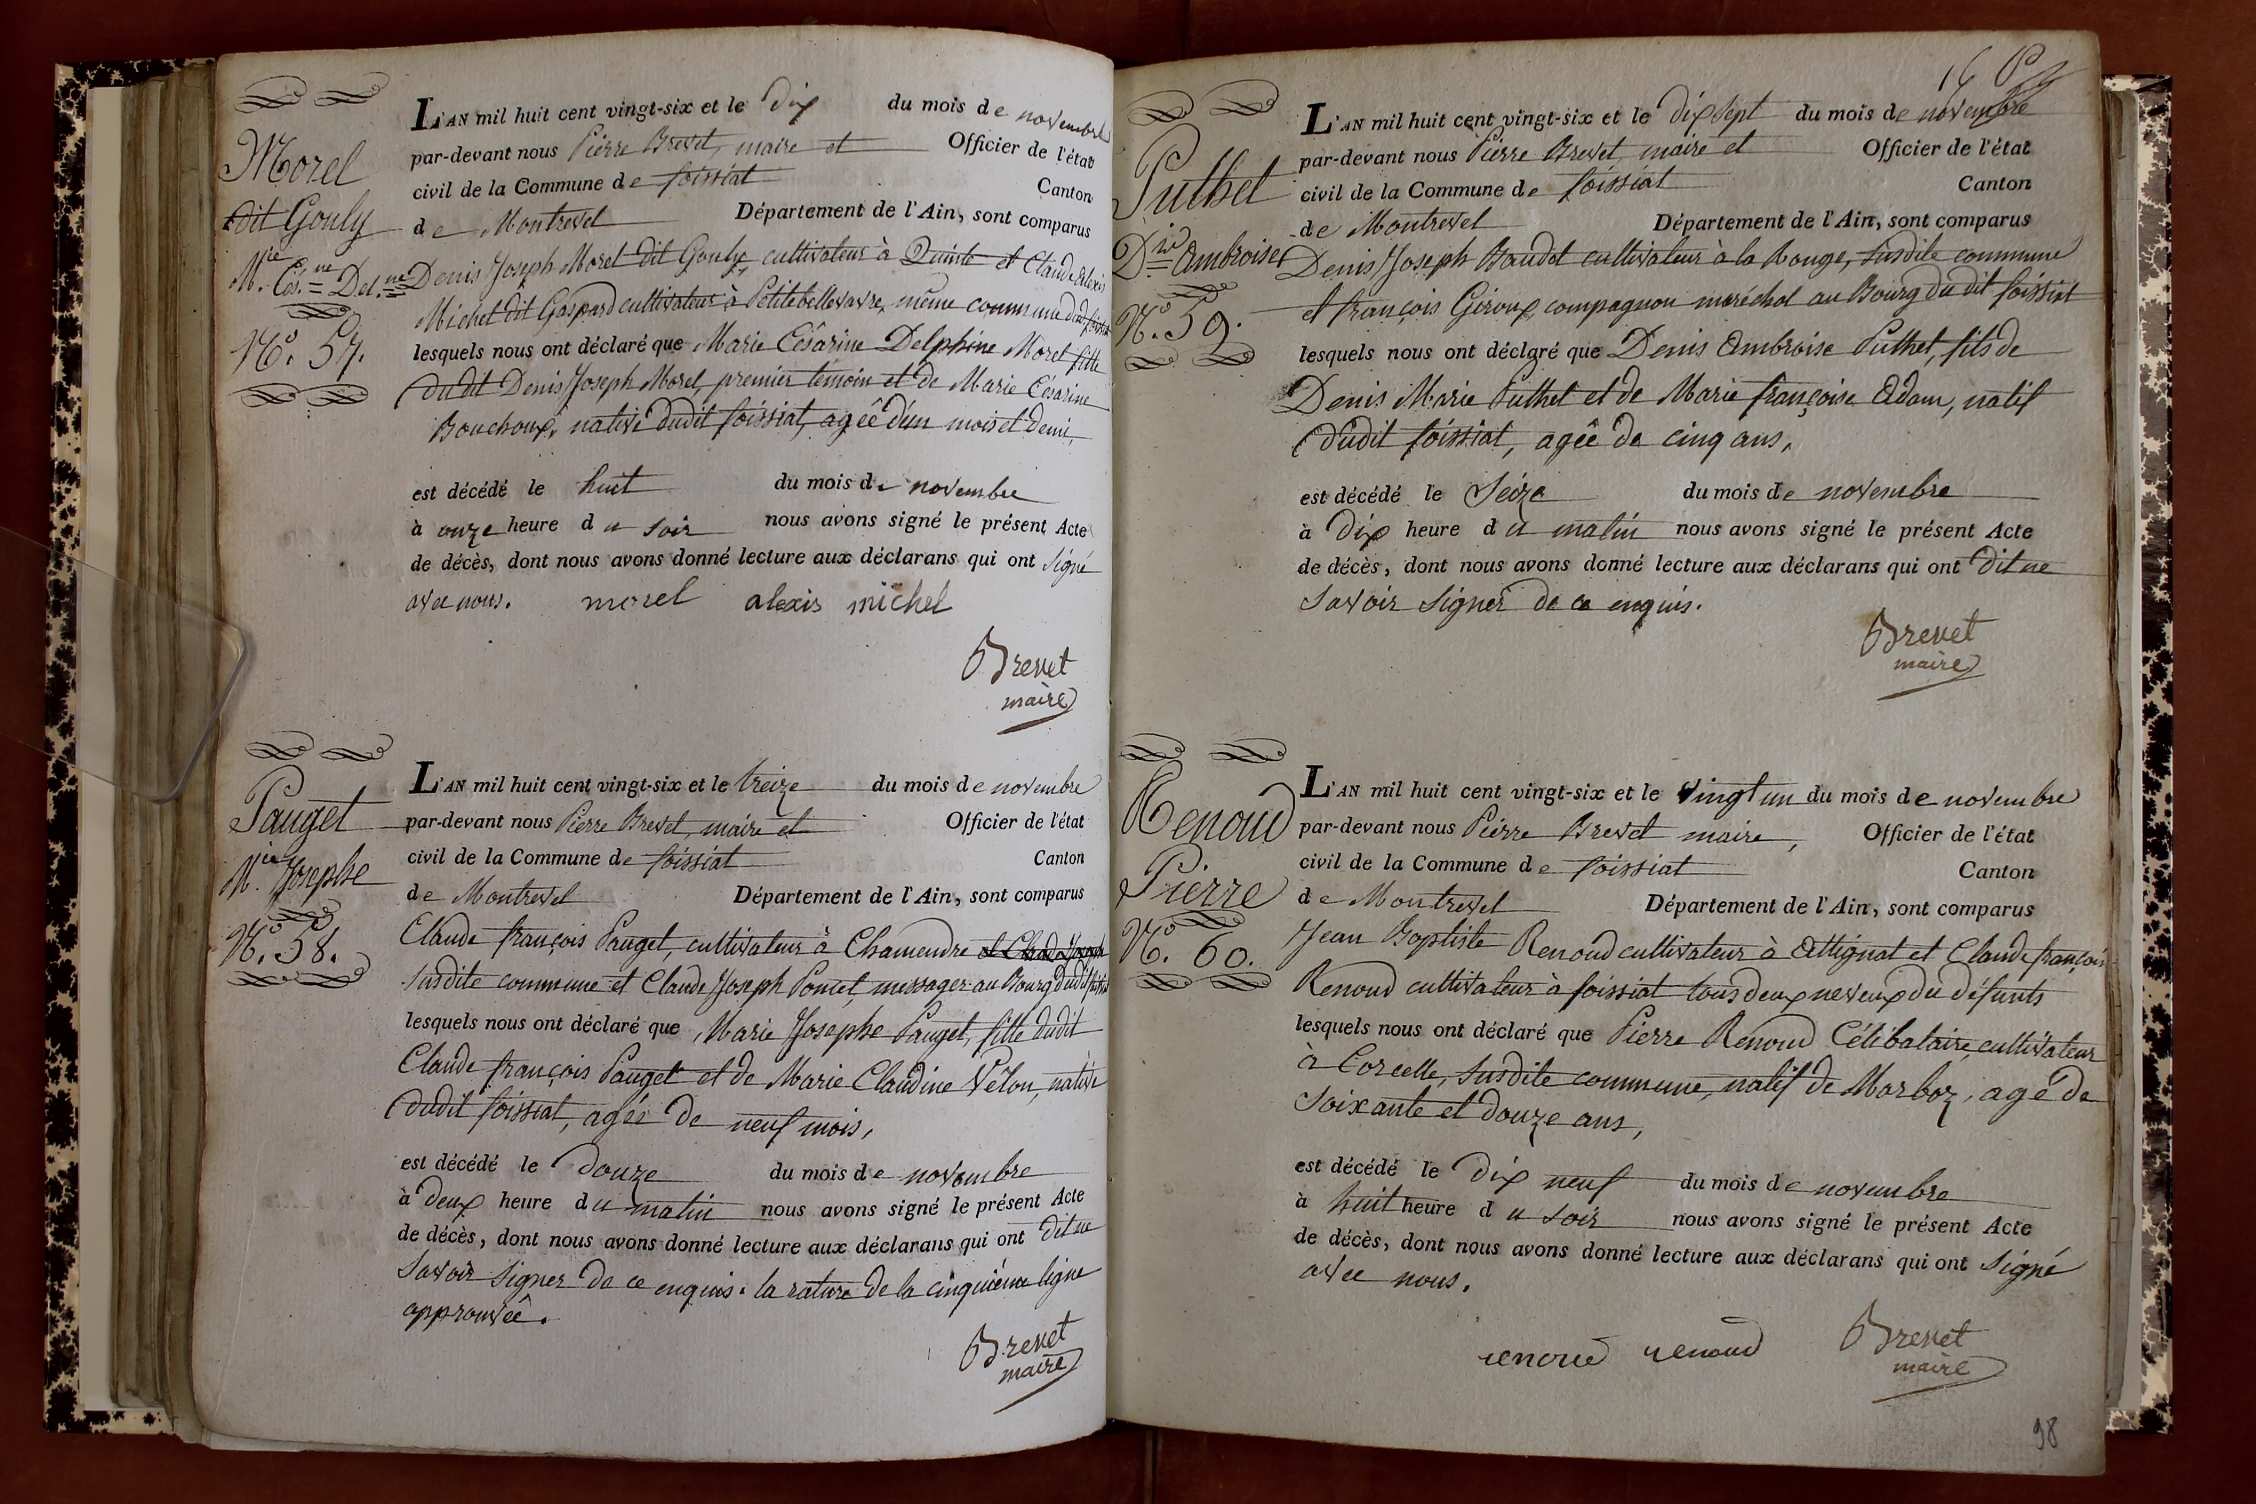 Morel
dit Gouly
M.ie Cés.ne Del.ne
N.° 57.
L'AN mil huit cent vingt-six et le dix du mois de novembre
par-devant nous Pierre Brevet, maire et Officier de l'état
civil de la Commune de foissiat Canton
de Montrevel Département de l'Ain, sont comparus
Denis Joseph Morel dit Gouly, cultivateur à Quinte et Claude Alexis
Michel dit Gaspard cultivateur à Petitebellevavre, même commune dud. foissiat
lesquels nous ont déclaré que Marie Césarine Delphine Morel fille
dudit Denis Joseph Morel, premier témoin et de Marie Césarine
Bouchoux, native dudit foissiat, agêe d'un mois et demi,
est décédé le huit du mois de novembre
à onze heure du soir nous avons signé le présent Acte
de décès, dont nous avons donné lecture aux déclarans qui ont signé
avec nous. morel alexis michel
Brevet
maire
Pauget
M.ie Josephe
N.° 58.
L'AN mil huit cent vingt-six et le treize du mois de novembre
par-devant nous Pierre Brevet, maire et Officier de l'état
civil de la Commune de foissiat Canton
de Montrevel Département de l'Ain, sont comparus
Claude françois Pauget, cultivateur à Chamendre et Claude Joseph
susdite commune et Claude Joseph Poncet, messager au Bourg dudit foissiat
lesquels nous ont déclaré que Marie Josephe Pauget, fille dudit
Claude françois Pauget et de Marie Claudine Vêlon, native
dudit foissiat, agée de neuf mois,
est décédé le douze du mois de novembre
à deux heure du matin nous avons signé le présent Acte
de décès, dont nous avons donné lecture aux déclarans qui ont dit ne
savoir signer de ce enquis. la rature de la cinquième ligne
approuvêe.
Brevet
maire
Puthet
D.is Ambroise
N.° 59.
L'AN mil huit cent vingt-six et le dix sept du mois de novembre
par-devant nous Pierre Brevet, maire et Officier de l'état
civil de la Commune de foissiat Canton
de Montrevel Département de l'Ain, sont comparus
Denis Joseph Baudet cultivateur à la Ronge, susdite commune
et françois Giroux, compagnon maréchal au Bourg du dit foissiat
lesquels nous ont déclaré que Denis Ambroise Puthet, fils de
Denis Marie Puthet et de Marie françoise Adam, natif
dudit foissiat, agêe de cinq ans,
est décédé le Seize du mois de novembre
à dix heure du matin nous avons signé le présent Acte
de décès, dont nous avons donné lecture aux déclarans qui ont dit ne
savoir signer de ce enquis.
Brevet
maire
Renoud
Pierre
N.° 60.
L'AN mil huit cent vingt-six et le vingt un du mois de novembre
par-devant nous Pierre Brevet maire, Officier de l'état
civil de la Commune de foissiat Canton
de Montrevel Département de l'Ain, sont comparus
Jean Baptiste Renoud cultivateur à Attignat et Claude françois
Renoud cultivateur à foissiat tous deux neveux du défunts
lesquels nous ont déclaré que Pierre Renoud Célibataire, cultivateur
à Corcelle, susdite commune, natif de Marboz, agé de
soixante et douze ans,
est décédé le dix neuf du mois de novembre
à huit heure du soir nous avons signé le présent Acte
de décès, dont nous avons donné lecture aux déclarans qui ont signé
avec nous.
renoud renoud Brevet
maire
98